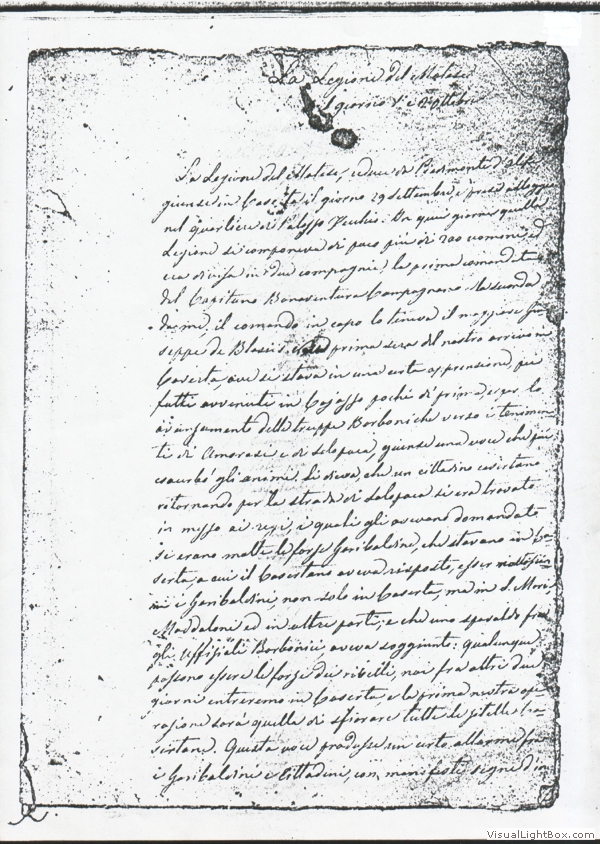 La Legione del Matese
I giorni 1° e 2 Ottobre
La Legione del Matese, reduce da Piedimonte d'Alife
giunse in Caserta il giorno 29 settembre, e prese alloggio
nel quartiere di Palazzo Vecchio. In quei giorni quella
Legione si componeva di poco più di 200 uomini ed
era divisa in due compagnie, la prima comandata
dal Capitano Bonaventura Campagnano e la seconda
da me, il comando in capo lo teneva il maggiore Giu
seppe de Blasiis. prima sera del nostro arrivo in
Caserta, ove si stava in una certa apprensione, pei
fatti avvenuti in Cajazzo pochi dì prima, e per lo
avanzamento delle truppe Borboniche verso i tenimen
ti di Amorosi e di Solopaca, giunse una voce che più
esacerbò gli animi. Si diceva, che un cittadino casertano
ritornando per la strada di Solopaca si era trovato
in mezzo ai regi, i quali gli avevano domandato
se erano molte le forze Garibaldine, che stavano in Ca
serta, a cui il Casertano aveva risposto, esser moltissi
mi i Garibaldini, non solo in Caserta, ma in S. Maria,
Maddaloni ed in altre parti; e che uno spavaldo fra
gli Uffiziali Borbonici aveva soggiunto: qualunque
possono essere le forze dei ribelli, noi fra altri due
giorni entreremo in Caserta e la prima nostra ope
razione sarà quella di sfiorare tutte le zitelle Ca
sertane. Questa voce produsse un certo allarme fra
i Garibaldini e Cittadini, con manifesti segni d'in
VisualLightBox.com